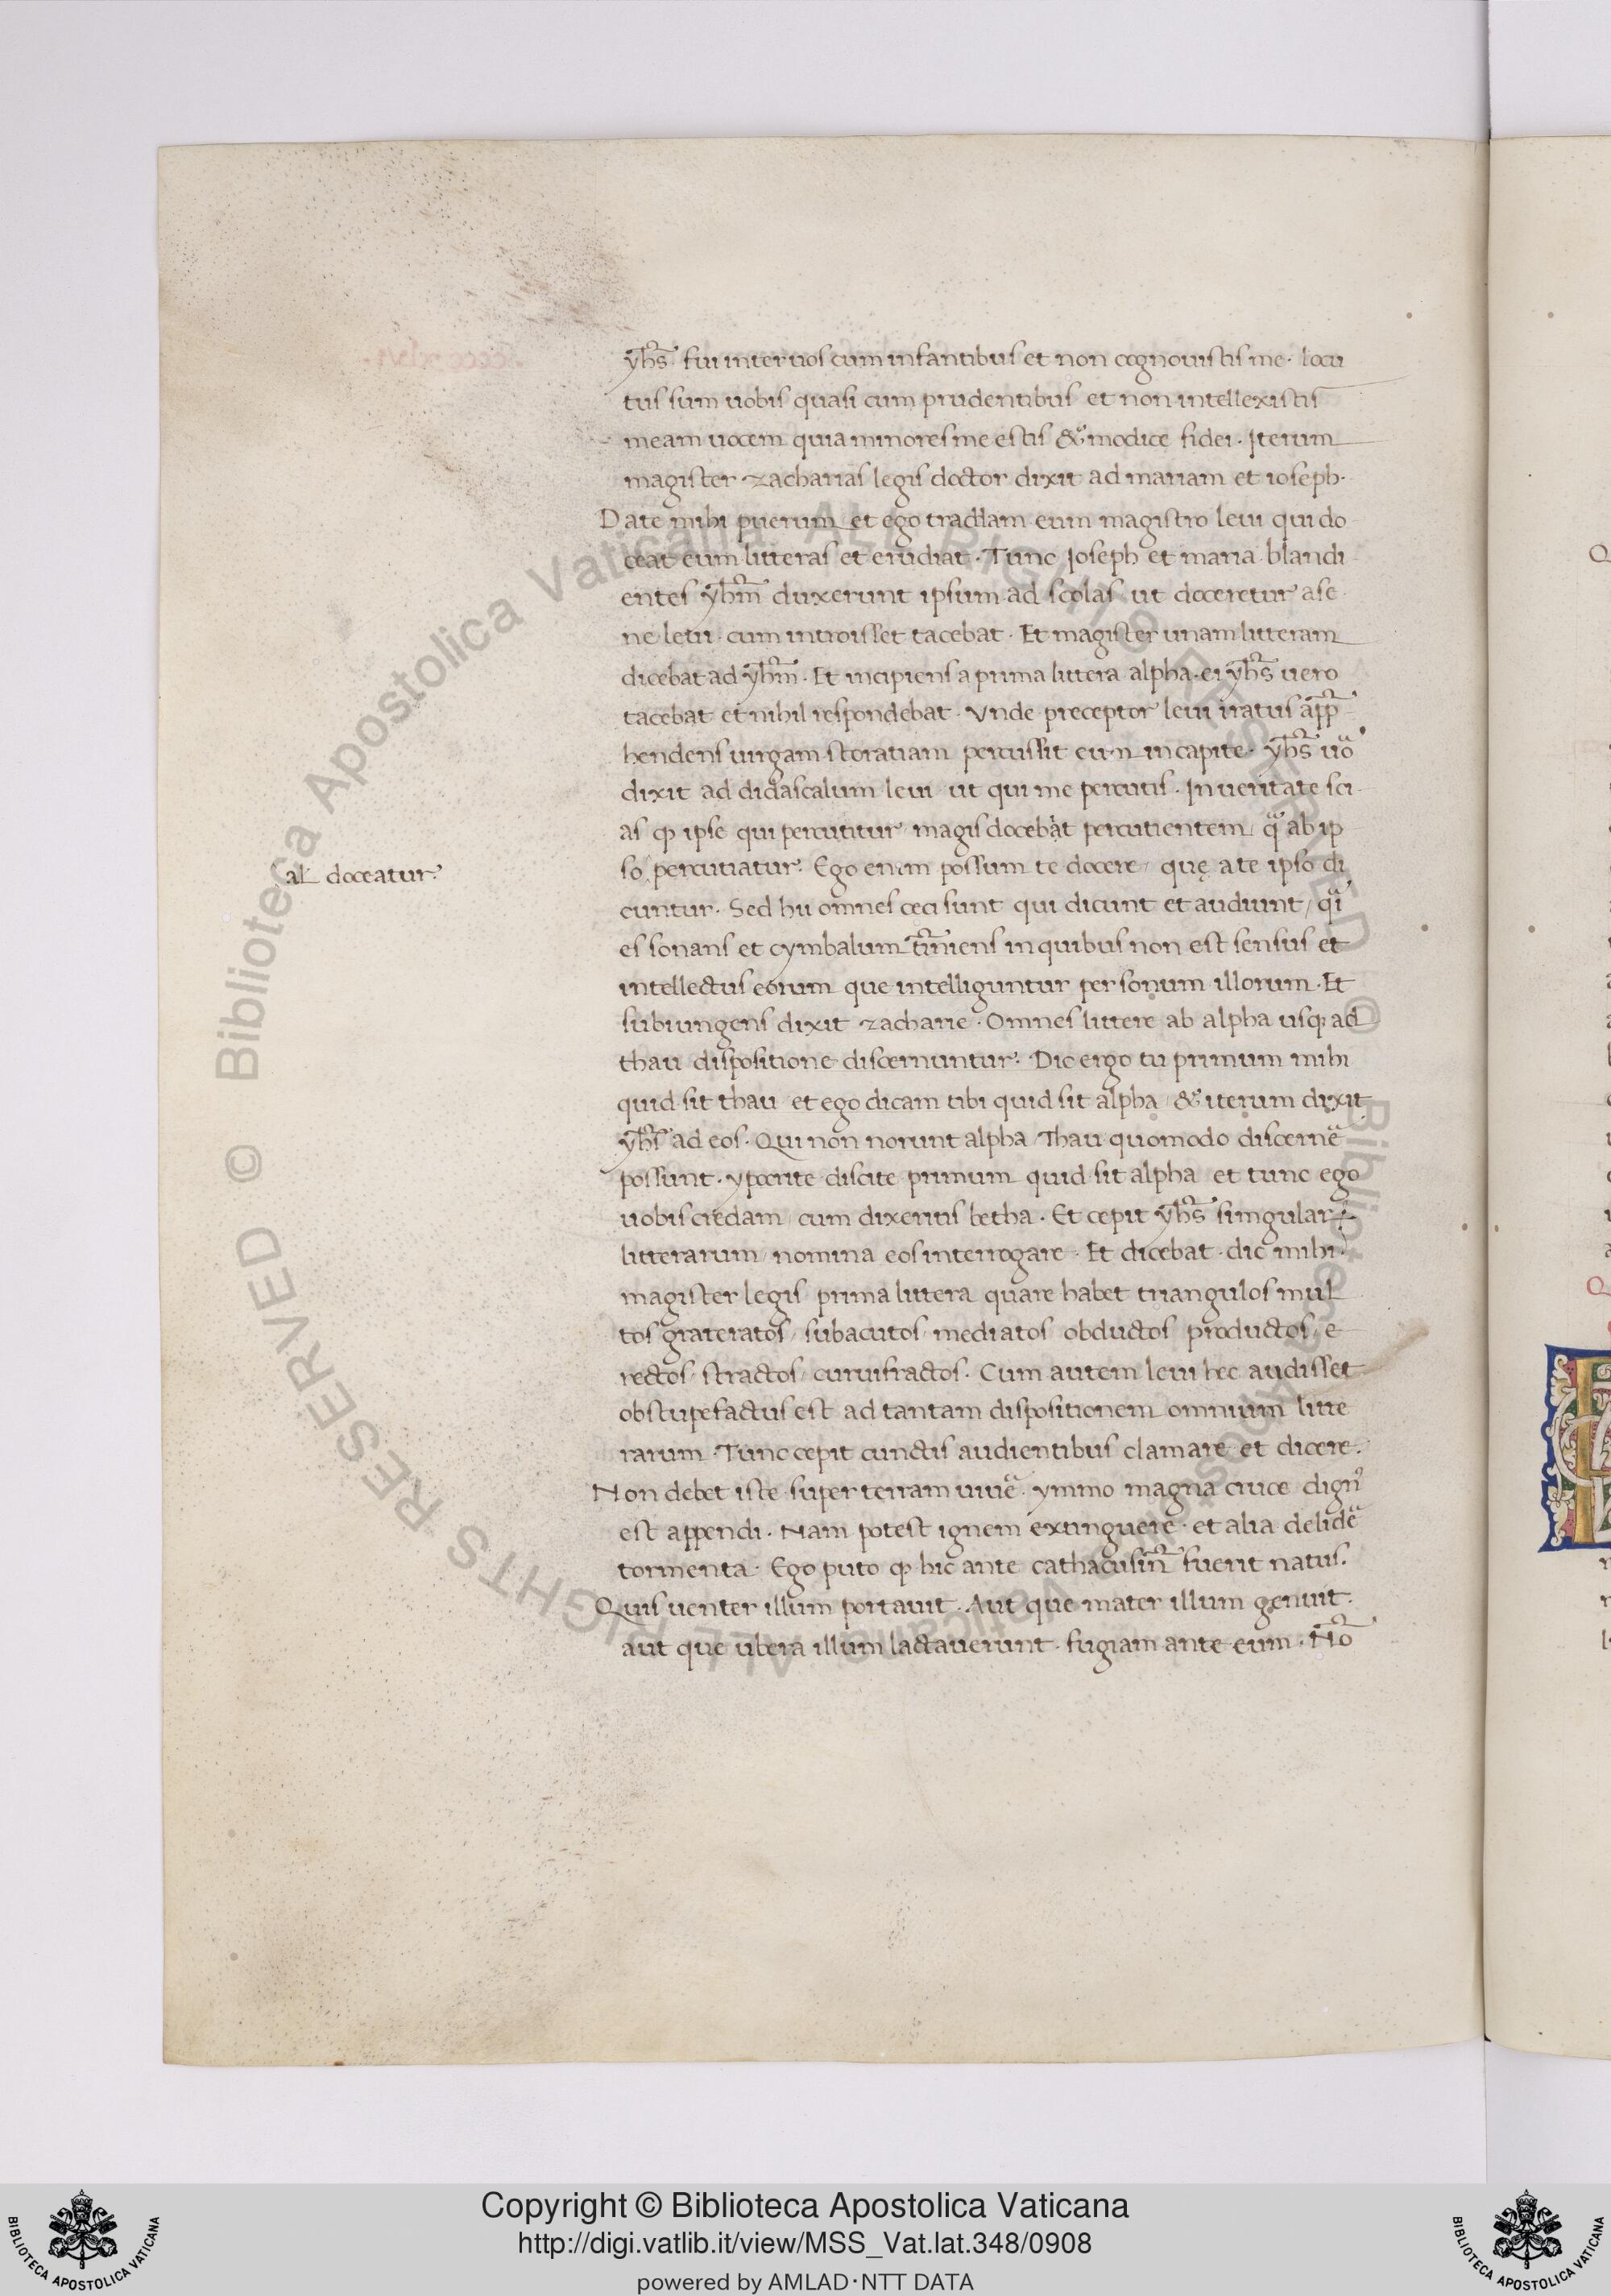 yh̅s fui inter uos cum infantibus et non cognouistis me · locu
tus sum uobis quasi cum prudentibus et non intellexistis
meam uocem quia minores me estis & modice fidei · Iterum
magister zacharias legis doctor dixit ad mariam et ioseph ·
Date mihi puerum et ego tradam eum magistro leui qui do
ceat eum litteras et erudiat · Tunc Ioseph et maria blandi
entes yh̅m duxerunt ipsum ad scolas ut doceretur a se
ne leui · cum introisset tacebat · Et magister unam litteram
dicebat ad yh̅m · Et incipiens a prima littera alpha · ei yh̅s uero
tacebat et nihil respondebat · Vnde preceptor leui iratus app̅
hendens uirgam storatiam percussit eum in capite · yh̅s uo̅
dixit ad didascalum leui ut qui me percutis · In ueritate sci
as qp ipse qui percutitur magis docebat percutientem q̅ ab ip
so percutiatur · Ego enim possum te docere / quę a te ipso di
cuntur · Sed hii omnes ceci sunt qui dicunt et audiunt / q̅i
es sonans et cymbalum tin̅iens in quibus non est sensus et
intellectus eorum que intelliguntur per sonum illorum · Et
subiungens dixit zacharie · Omnes littere ab alpha usq; ad
thau dispositione discernuntur · Dic ergo tu primum mihi
quid sit thau / et ego dicam tibi quid sit alpha / & iterum dixit
yh̅s ad eos · Qui non norunt alpha Thau quomodo discerne̅
possunt · ypocrite discite primum quid sit alpha et tunc ego
uobis credam / cum dixeritis betha · Et cepit yh̅s singular
litterarum nomina eos interrogare · Et dicebat · dic mihi
magister legis prima littera quare habet triangulos mul
tos grateratos / subacutos / mediatos obductos productos / e
rectos / stractos / curuifractos · Cum autem leui hec audisset
obstupefactus est ad tantam dispositionem omnium litte
rarum · Tunc cepit cunctis audientibus clamare et dicere ·
Non debet iste super terram uiue̅ · ymmo magna cruce dign᾿
est appendi · Nam potest ignem extinguere · et alia delide̅
tormenta · Ego puto qp hic ante cathacusin̅ fuerit natus ·
Quis uenter illum portauit · Aut que mater illum genuit ·
aut que ubera illum lactauerunt · fugiam ante eum · No̅
al doceatur
Copyright © Biblioteca Apostolica Vaticana
http://digi.vatlib.it/view/MSS_Vat.lat.348/0908
powered by AMLAD·NTT DATA
BIBLIOTECA APOSTOLICA VATICANA
BIBLIOTECA APOSTOLICA VATICANA
© Biblioteca Apostolica Vaticana ALL RIGHTS RESERVED
© Biblioteca Apostolica Vaticana ALL RIGHTS RESERVED